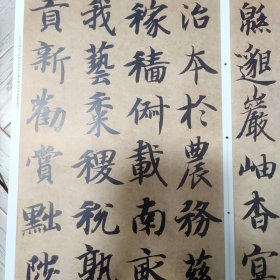 緜邈巖岫杳冥
治本於農務茲
稼穡俶載南畝
我藝黍稷稅熟
貢新勸賞黜陟